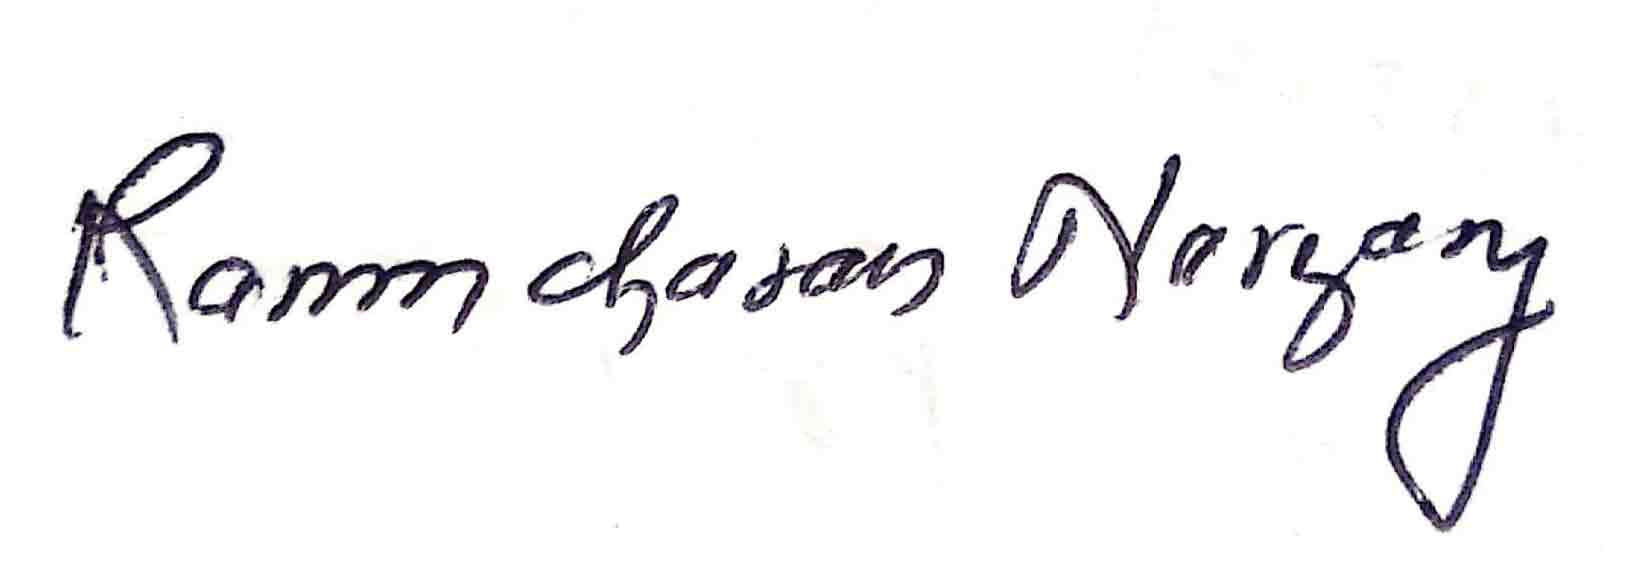 Ramcharan Narzary